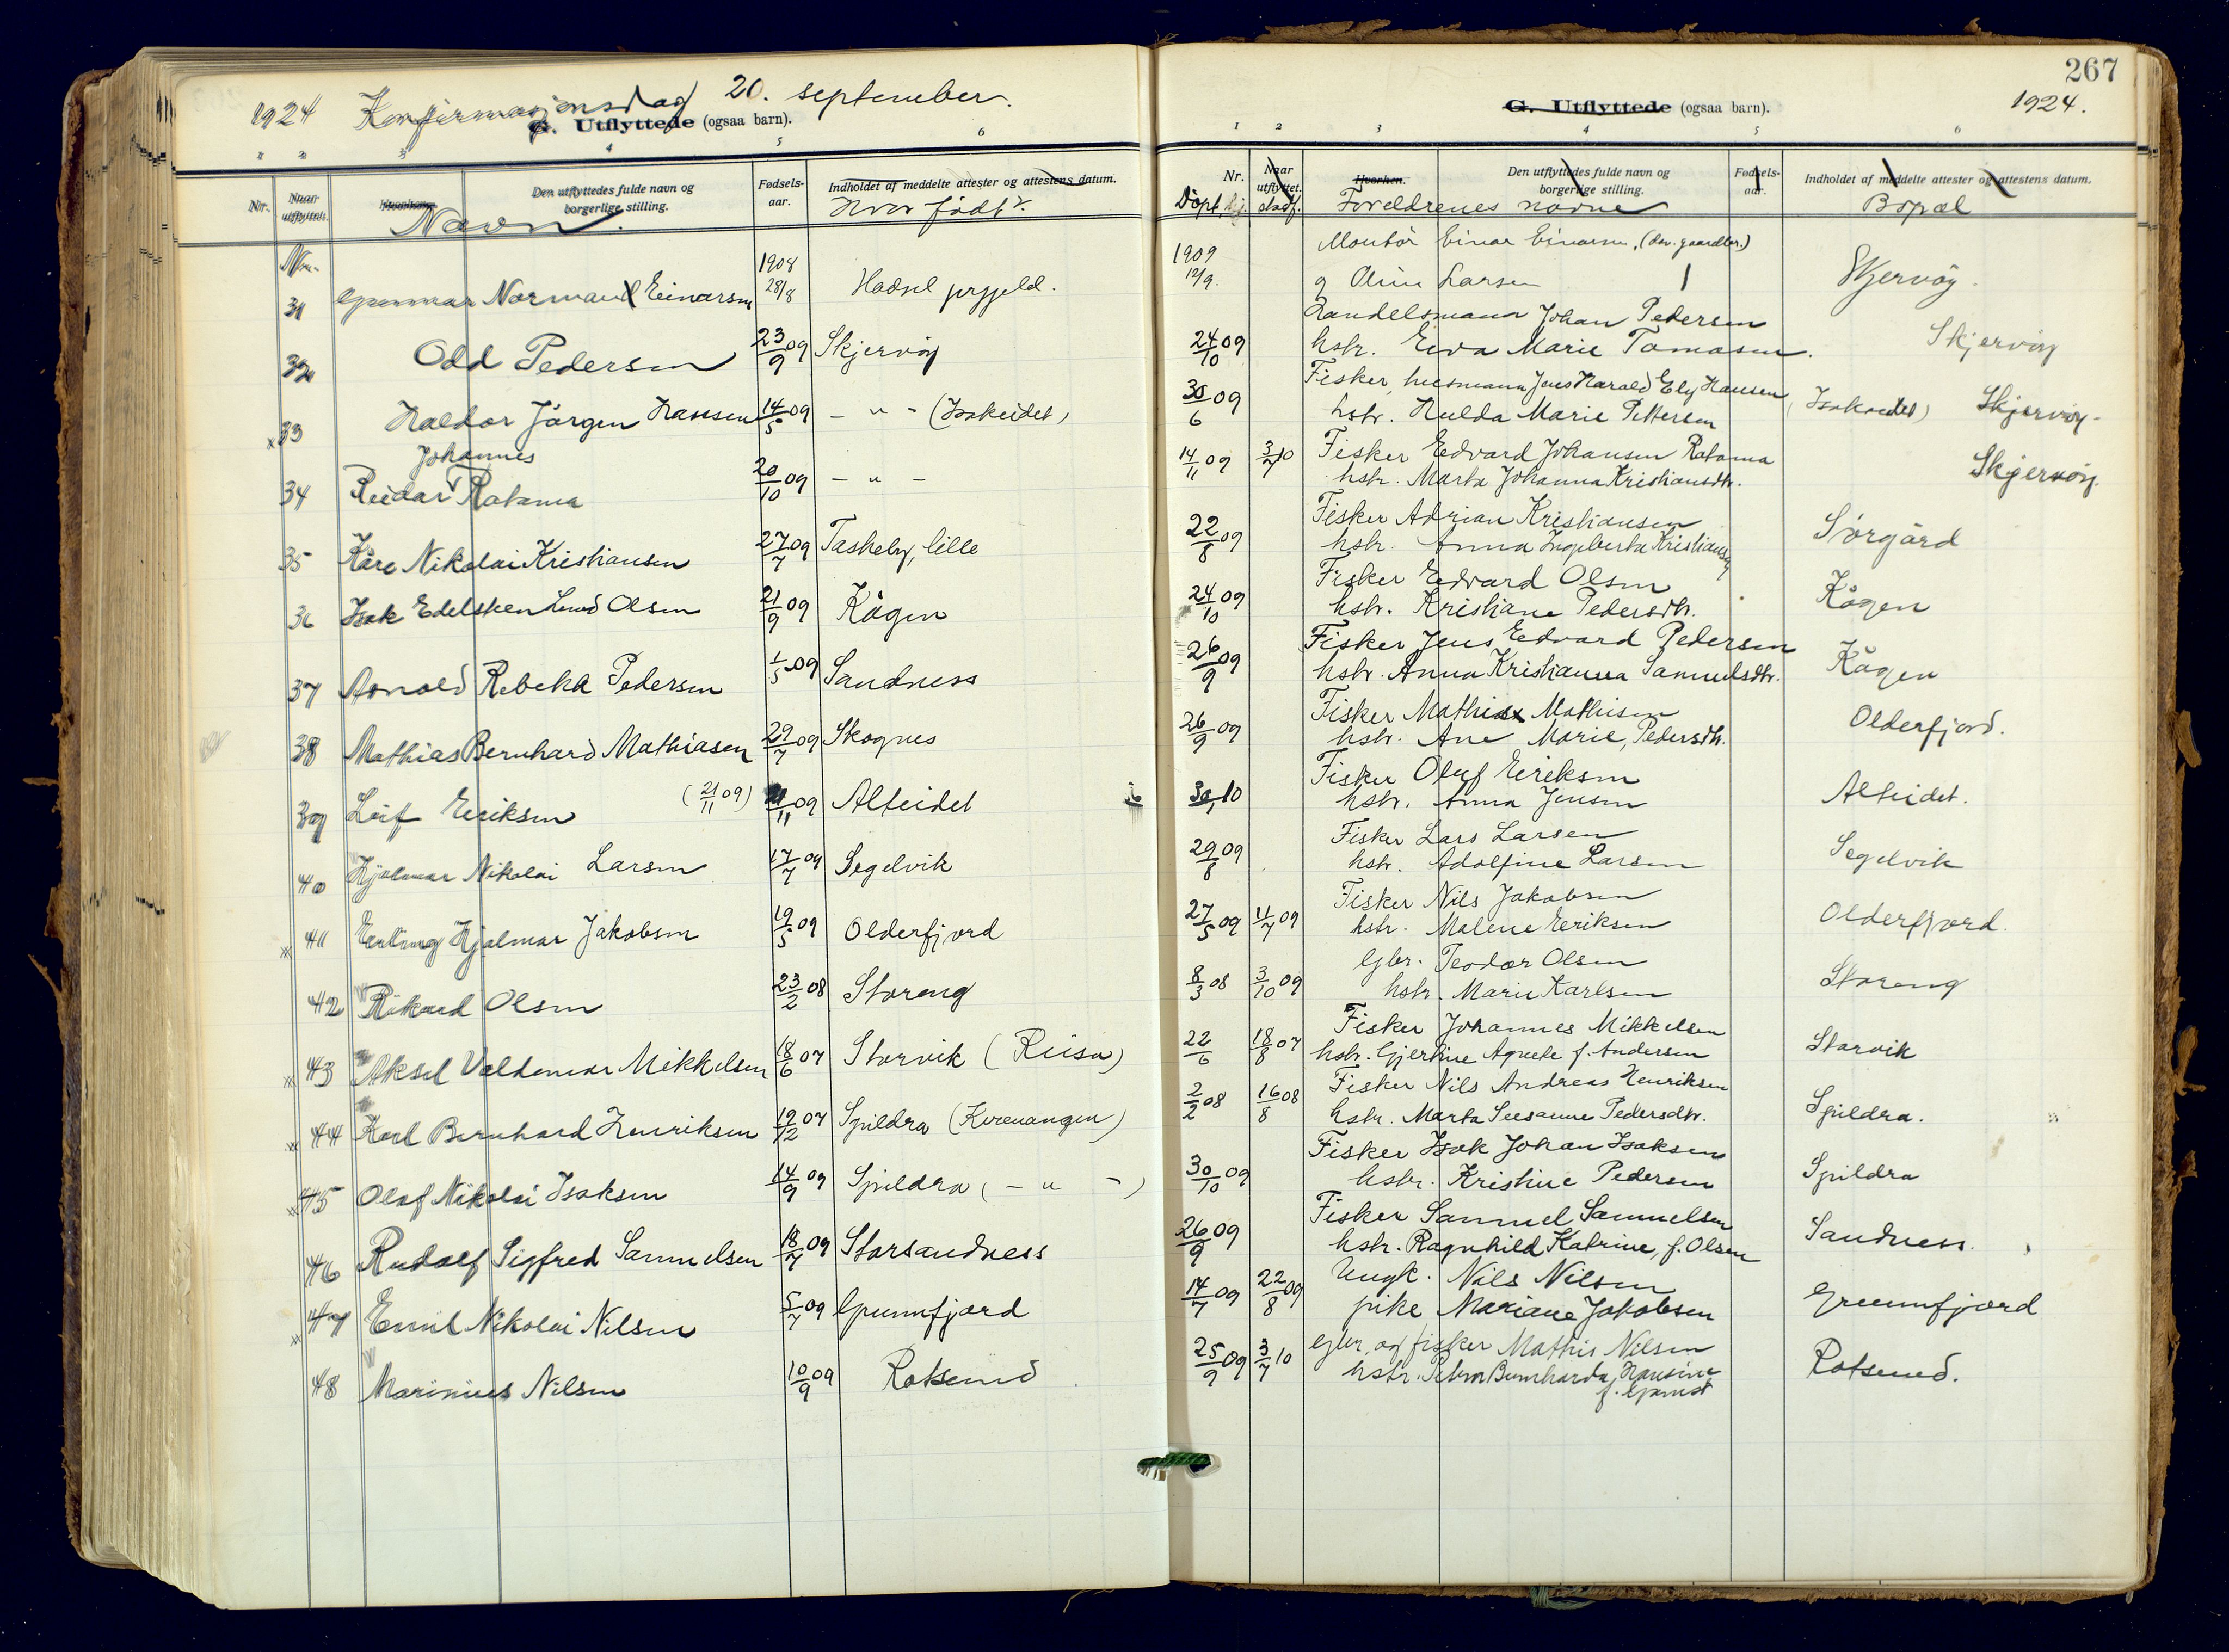 1924 Konfirmasjonsdag 20. september.
G. Utflyttede (ogsaa barn).
1 2 3 4 5 6
Nr.
Naar utflyttet.
Hvorhen.
Den utflyttedes fulde navn og borgerlige stilling.
Fødsels-aar.
Indholdet af meddelte attester og attestens datum.
Navn.
Hvor født?
Nr.
31 Gunnar Norman Einarsen 1908 28/8 Hadsel prgjeld.
32 Odd Pedersen 23/9 09 Skjervöy
x 33 Haldor Jörgen Hansen 14/5 09 - " - (Isakeidet)
Johannes
34 Reidar Ratama 20/10 09 - " -
35 Kåre Nikolai Kristiansen 27/7 09 Taskeby, lille
36 Isak Edelsken Lund Olsen 21/9 09 Kågen
37 Arnold Rebekk Pedersen 1/5 09 Sandness
38 Mathias Bernhard Mathiasen 29/7 09 Skognes
39 Leif Eriksen (21/11 09) 21/11 09 Alteidet
40 Hjalmar Nikolai Larsen 17/7 09 Segelvik
x 41 Erling Hjalmar Jakobsen 19/5 09 Olderfjord
42 Rikard Olsen 23/2 08 Storeng
x 43 Aksel Valdemar Mikkelsen 18/6 07 Storvik (Reisa)
x 44 Karl Bernhard Henriksen 19/12 07 Spildra (Kvenangen)
x 45 Olaf Nikolai Isaksen 14/9 09 Spildra (- " -)
46 Rudolf Sigfred Samuelsen 18/7 09 Storsandness
x 47 Emil Nikolai Nilsen 5/7 09 Grunnfjord
48 Marinius Nilsen 10/9 09 Rotsund
267
1924.
G. Utflyttede (ogsaa barn).
1 2 3 4 5 6
Nr.
Naar utflyttet.
Hvorhen.
Den utflyttedes fulde navn og borgerlige stilling.
Fødsels-aar.
Indholdet af meddelte attester og attestens datum.
Döpt, hj. stadf. Foreldrenes navne Bopæl
1909 Montör Einar Einarsen, (dav. gaardbr.)
12/9. g Oline Larsen Skjervöy.
Handelsmann Johan Pedersen
24/10 09 hstr. Eeva Marie Tomasen. Skjervöy
Fisker, husmann Jens Harald Ely Hansen
30/6 09 hstr. Hulda Marie Pettersen (Isakeidet) Skjervöy.
14/11 09 3/7 10 Fisker Edvard Johansen Ratama
hstr. Marta Johanna Kristiansdtr. Skjervöy.
Fisker Adrian Kristiansen
22/8 09 hstr. Anna Ingeberta Kristiansen Sörgård
Fisker Edvard Olsen
24/10 09 hstr. Kristiane Pedersdtr. Kågen
Fisker Jens Edvard Pedersen
26/9 09 hstr. Anna Kristianna Samuelsdtr. Kågen
Fisker Mathias Mathisen
26/9 09 hstr. Ane Marie, Pedersdtr. Olderfjord.
Fisker Oluf Eriksen
30/1 10 hstr. Anna Jensen Alteidet.
Fisker Lars Larsen
29/8 09 hstr. Adolfine Larsen Segelvik
Fisker Nils Jakobsen
27/5 09 11/7 09 hstr. Malene Eriksen Olderfjord.
Gbr. Teodor Olsen
8/3 08 3/10 09 hstr. Marie Karlsen Storeng
Fisker Johannes Mikkelsen
22/6 18/8 07 hstr. Gjertine Agnete f. Andersen Storvik
Fisker Nils Andreas Henriksen
2/2 08 16/8 08 hstr. Marta Susanne Pedersdtr. Spildra.
Fisker Isak Johan Isaksen
30/10 09 hstr. Kristine Pedersen Spildra
Fisker Samuel Samuelsen
26/9 09 hstr. Ragnhild Katrine, f. Olsen Sandness.
Ungk. Nils Nilsen
14/7 09 22/8 09 pike Mariane Jakobsen Grunnfjord
Gbr. og fisker Mathis Nilsen
25/9 09 3/7 10 hstr. Petra Bernharda, Hansine Rotsund.